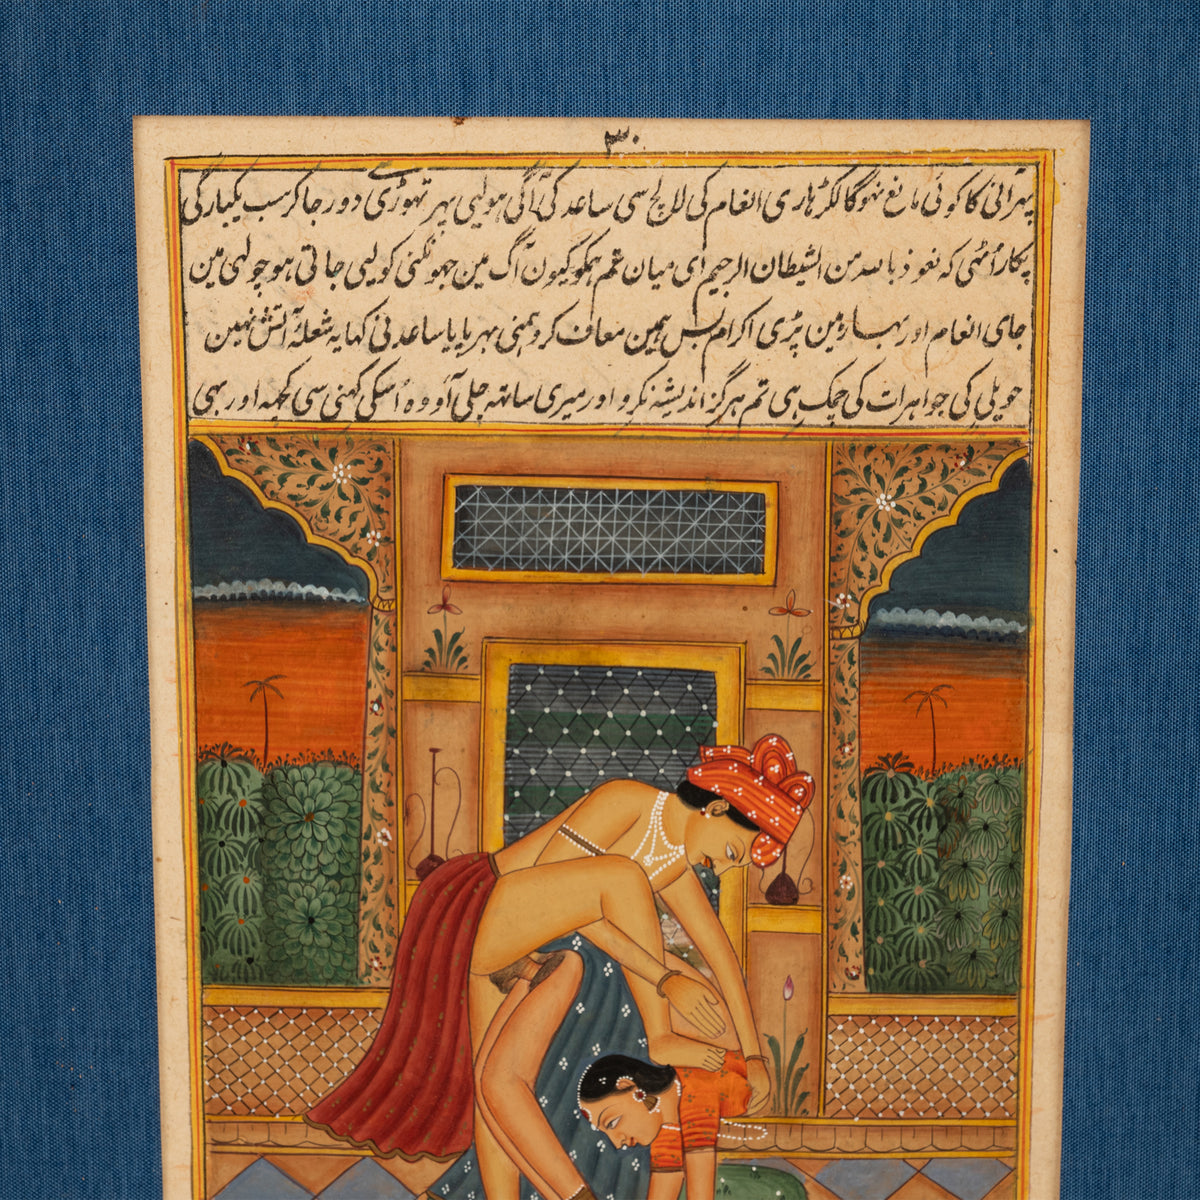 ۳۰
پهر آنی کا کوئی مانع نهوگا لکڑهاری انعام کی لالچ سی ساعد کی آگی هولیی پهر تهوڑی دور جاکر سب یکبارگی
پکار اُٹهی که نعوذ بالله من الشیطان الرجیم ای میان تم همکو کیون آگ مین جهونکنی کو لیی جاتی هو چولهی مین
جای انعام اور بهاڑ مین پڑی اکرام بس همین معاف کرو همنی بهر پایا ساعد نی کها یه شعلهٔ آتش نهین
حویلی کی جواهرات کی چمک هی تم هرگز اندیشه نکرو اور میری ساتهه چلی آو وه اُسکی کهنی سی کچهه اور بهی